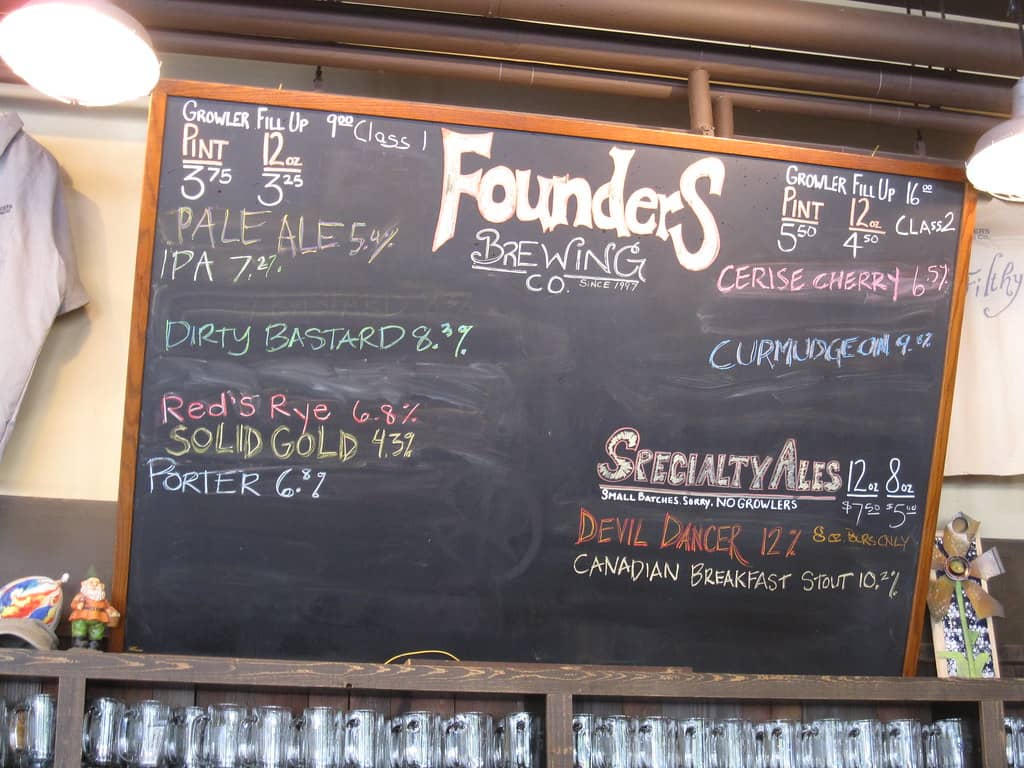 GROWLER FILL UP 9.00 Class 1
PINT 12oz
3.75 3.25
PALE ALE 5.4%
IPA 7.2%
DIRTY BASTARD 8.3%
Red's Rye 6.8%
SOLID GOLD 4.3%
PORTER 6.8%
FounderS
BREWING
CO. SINCE 1997
GROWLER FILL UP 16.00
PINT 12oz CLASS 2
5.50 4.50
CERISE CHERRY 6.5%
CURMUDGEON 9.8%
SPECIALTY ALES 12oz 8oz
SMALL BATCHES. SORRY, NO GROWLERS $7.50 $5.00
DEVIL DANCER 12% 8oz. POURS ONLY
CANADIAN BREAKFAST STOUT 10.2%
Filthy